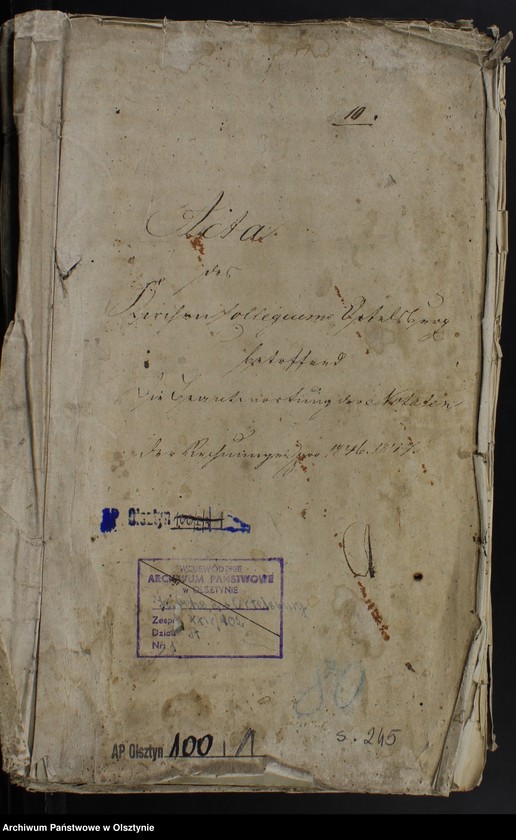 10.
Acta
des
Kirchen Collegiums Ortelsburg
betreffend
die Beantwortung der Notaten
der Rechnungen pro 1846. 1847.
AP Olsztyn
WOJEWÓDZKIE
ARCHIWUM PAŃSTWOWE
W OLSZTYNIE
Zespół XXVI/100
Dział
Nr: 1
50
AP Olsztyn 100 / 1
s. 245
Archiwum Państwowe w Olsztynie